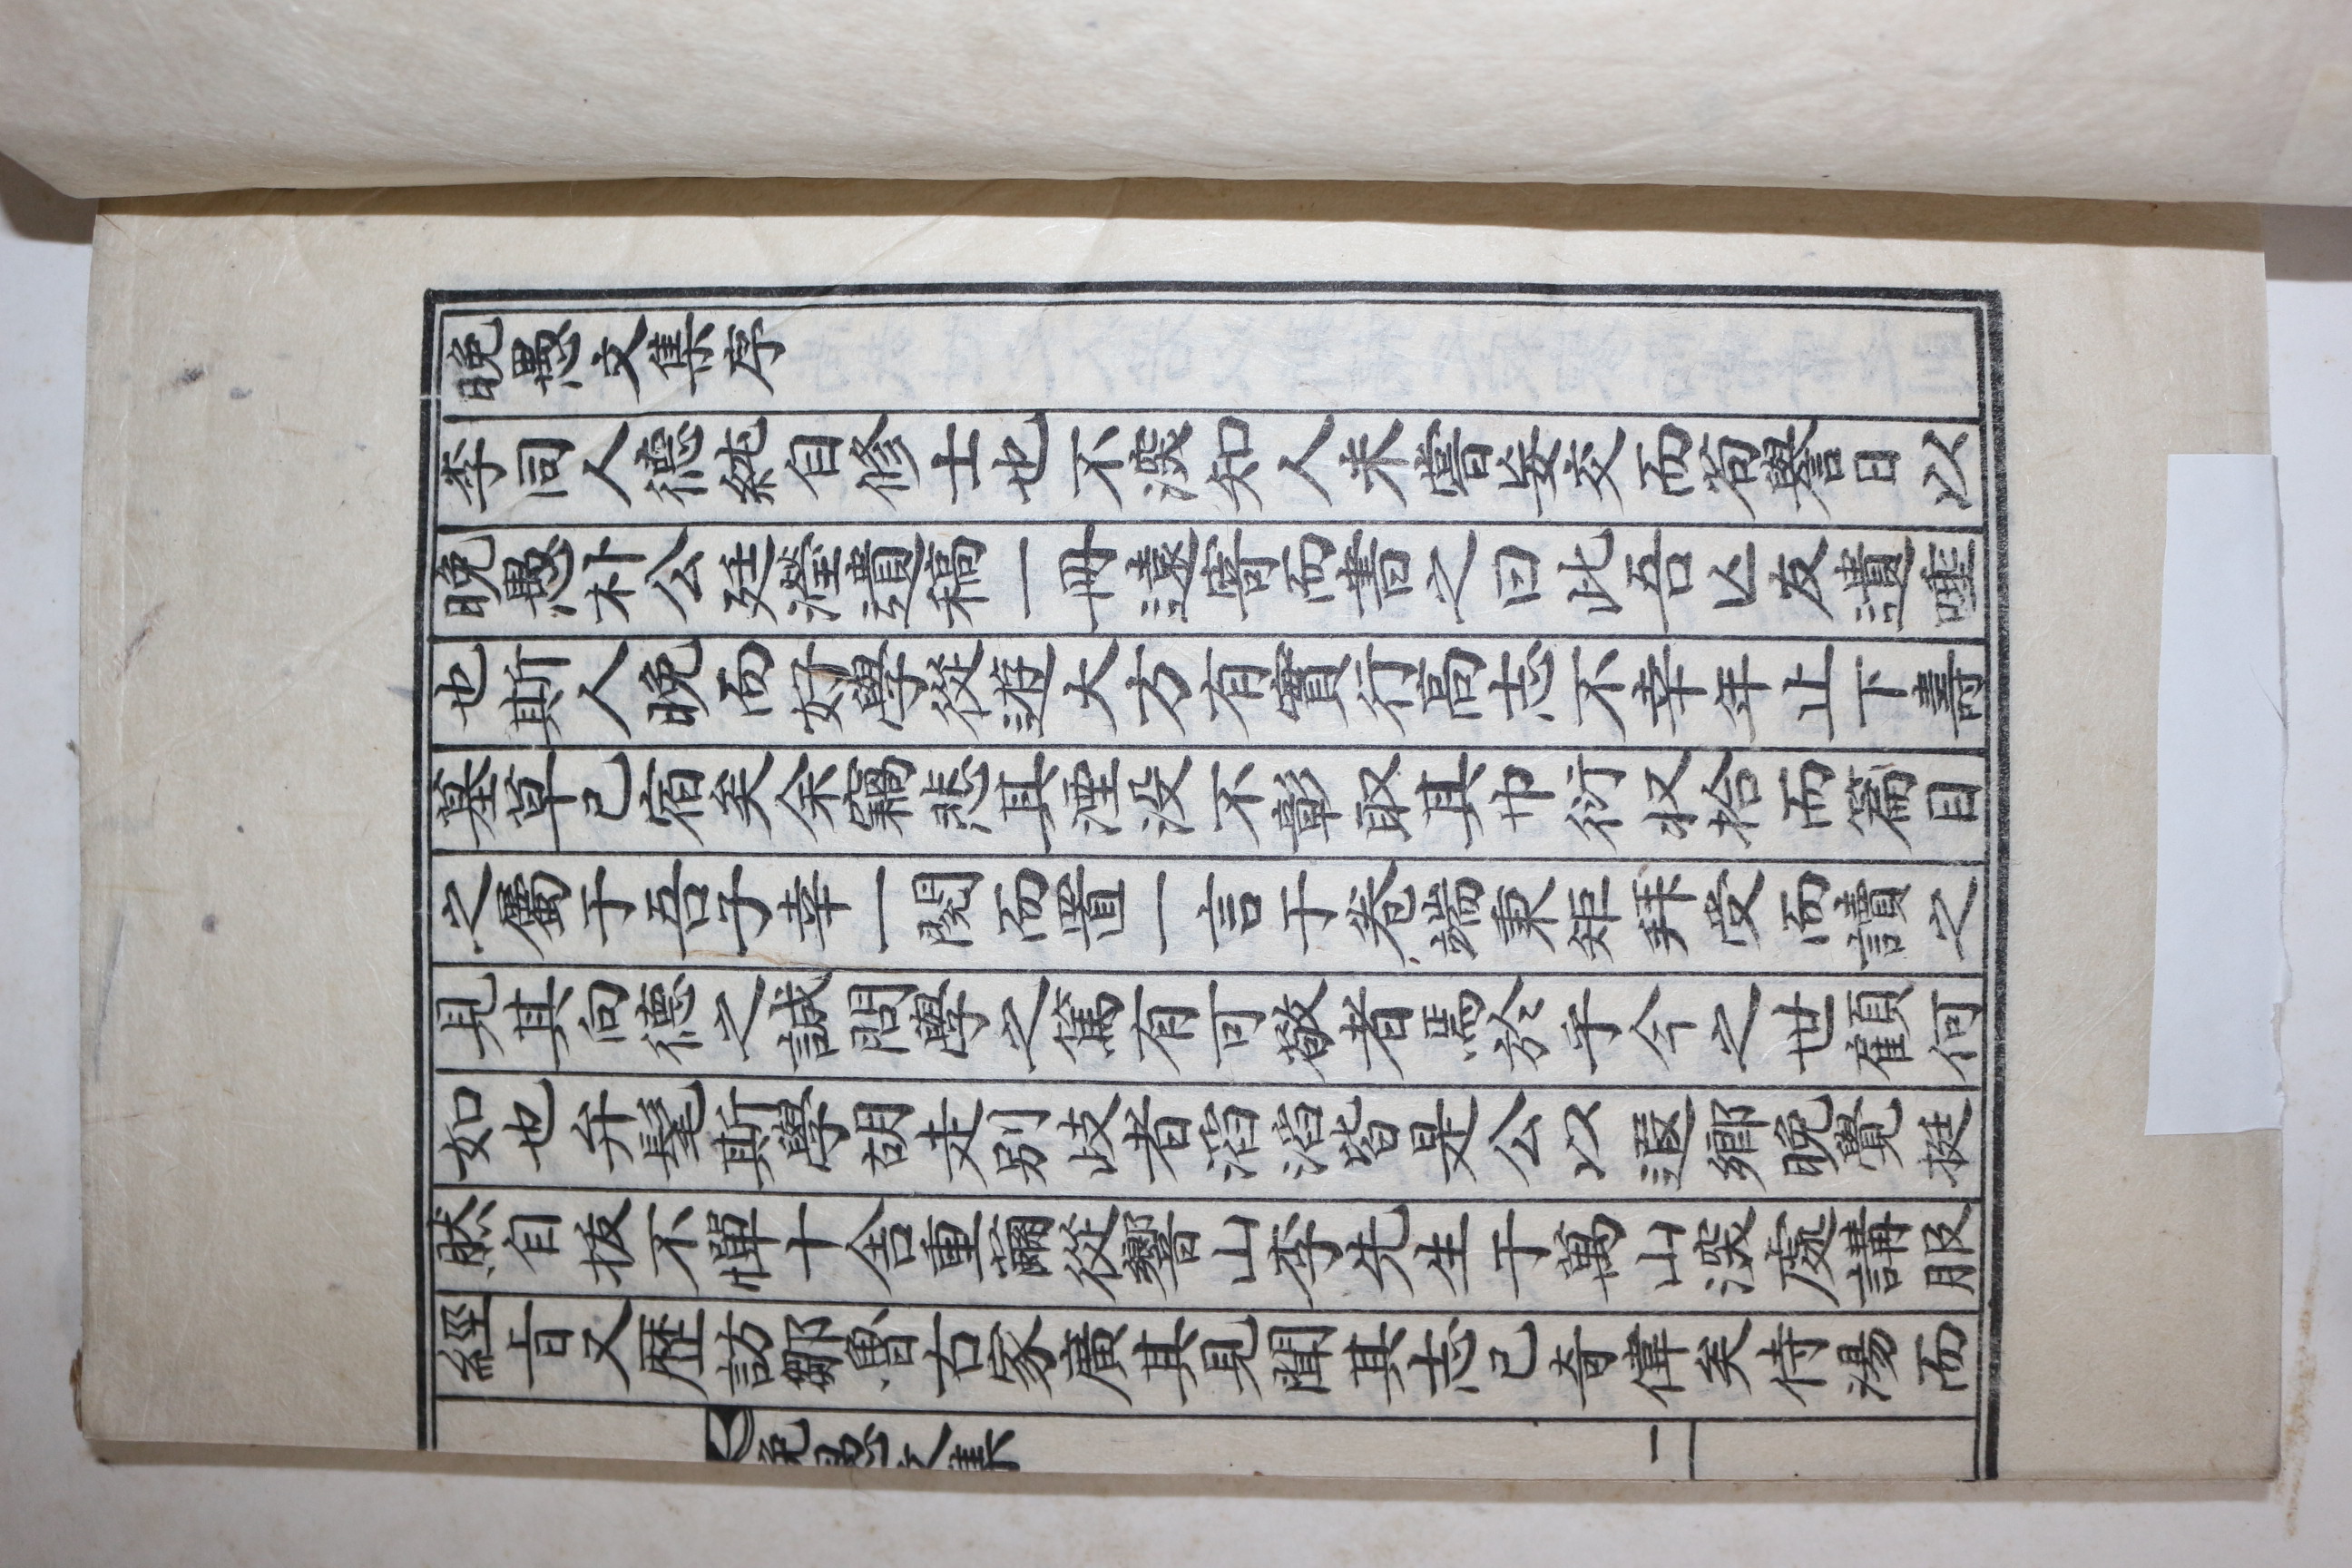 晩愚文集序
李同人德純自修士也不濫知人未嘗妄交而苟與言日以
晩愚朴公廷瀅遺稿一冊遠寄而書之曰此吾亾友遺唾
也斯人晩而好學從遊大方有實行高志不幸年止下壽
墓草已宿矣余竊悲其湮沒不彰取其巾衍収拾而篇目
之屬于吾子幸一閱而置一言于卷端秉矩拜受而讀之
見其向德之誠問學之篤有可敬者焉於乎今之世顧何
如也弁髦斯學胡走別歧者滔滔皆是公以遐鄕晩覺挺
然自拔不憚十舍重繭從響山李先生于萬山深處講服
經旨又歷訪鄒魯古家廣其見聞其志已奇偉矣侍湯而
晩愚文集 一